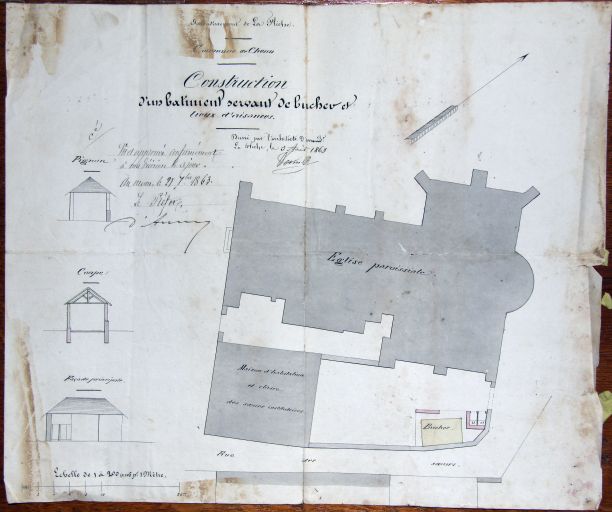 Arrondissement de La Flèche.
Commune de
Construction
d'un batiment servant de bucher et
lieux d'aisances.
Dressé par l'architecte
La Flèche, le 3 1863
Vu et approuvé conformément
à décision de ce jour.
Au mans, le 21 7bre 1863.
Le Préfet,
Pignon
Coupe
Façade principale
Eglise paroissiale.
Maison d'habitation
et
des sœurs institutrices
Bucher
Rue des sœurs.
Echelle de 1 à 200 1 Mètre.